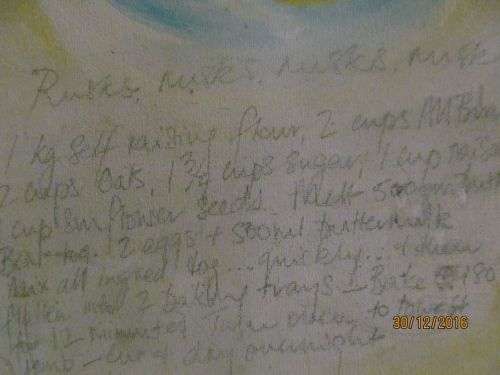 Rusks, rusks, rusks, rusk
1 kg self raising flour, 2 cups All Bran
2 cups Oats, 1 3/4 cups sugar, 1 cup raisi
1 cup sunflower seeds. Melt 500gm butt
2 eggs + 500ml buttermilk
Mix all ingred tog... quickly..
2 baking trays - Bake 180
for 12 Take
temp - cut dry overnight
30/12/2016